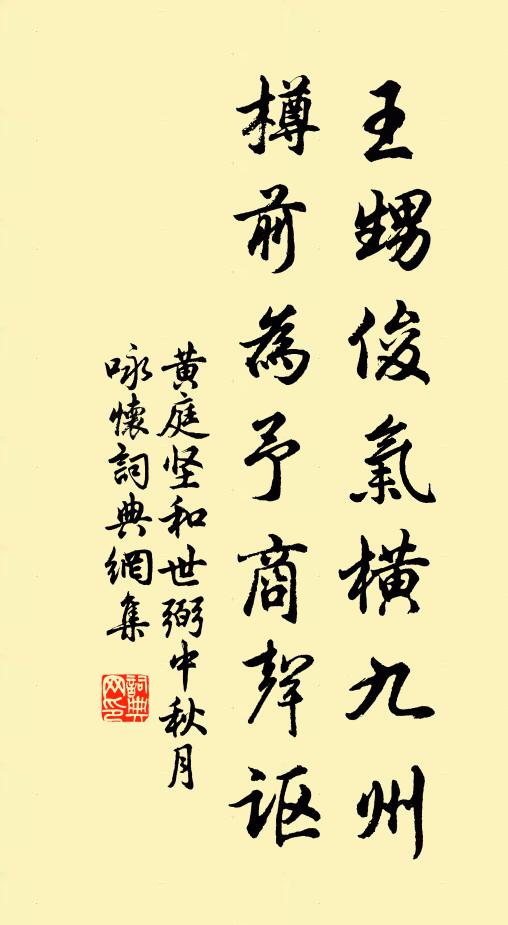 王甥俊氣橫九州
樽前為予商聲讴
黄庭坚和世弼中秋月
咏懷詞典網集
詞典
网印